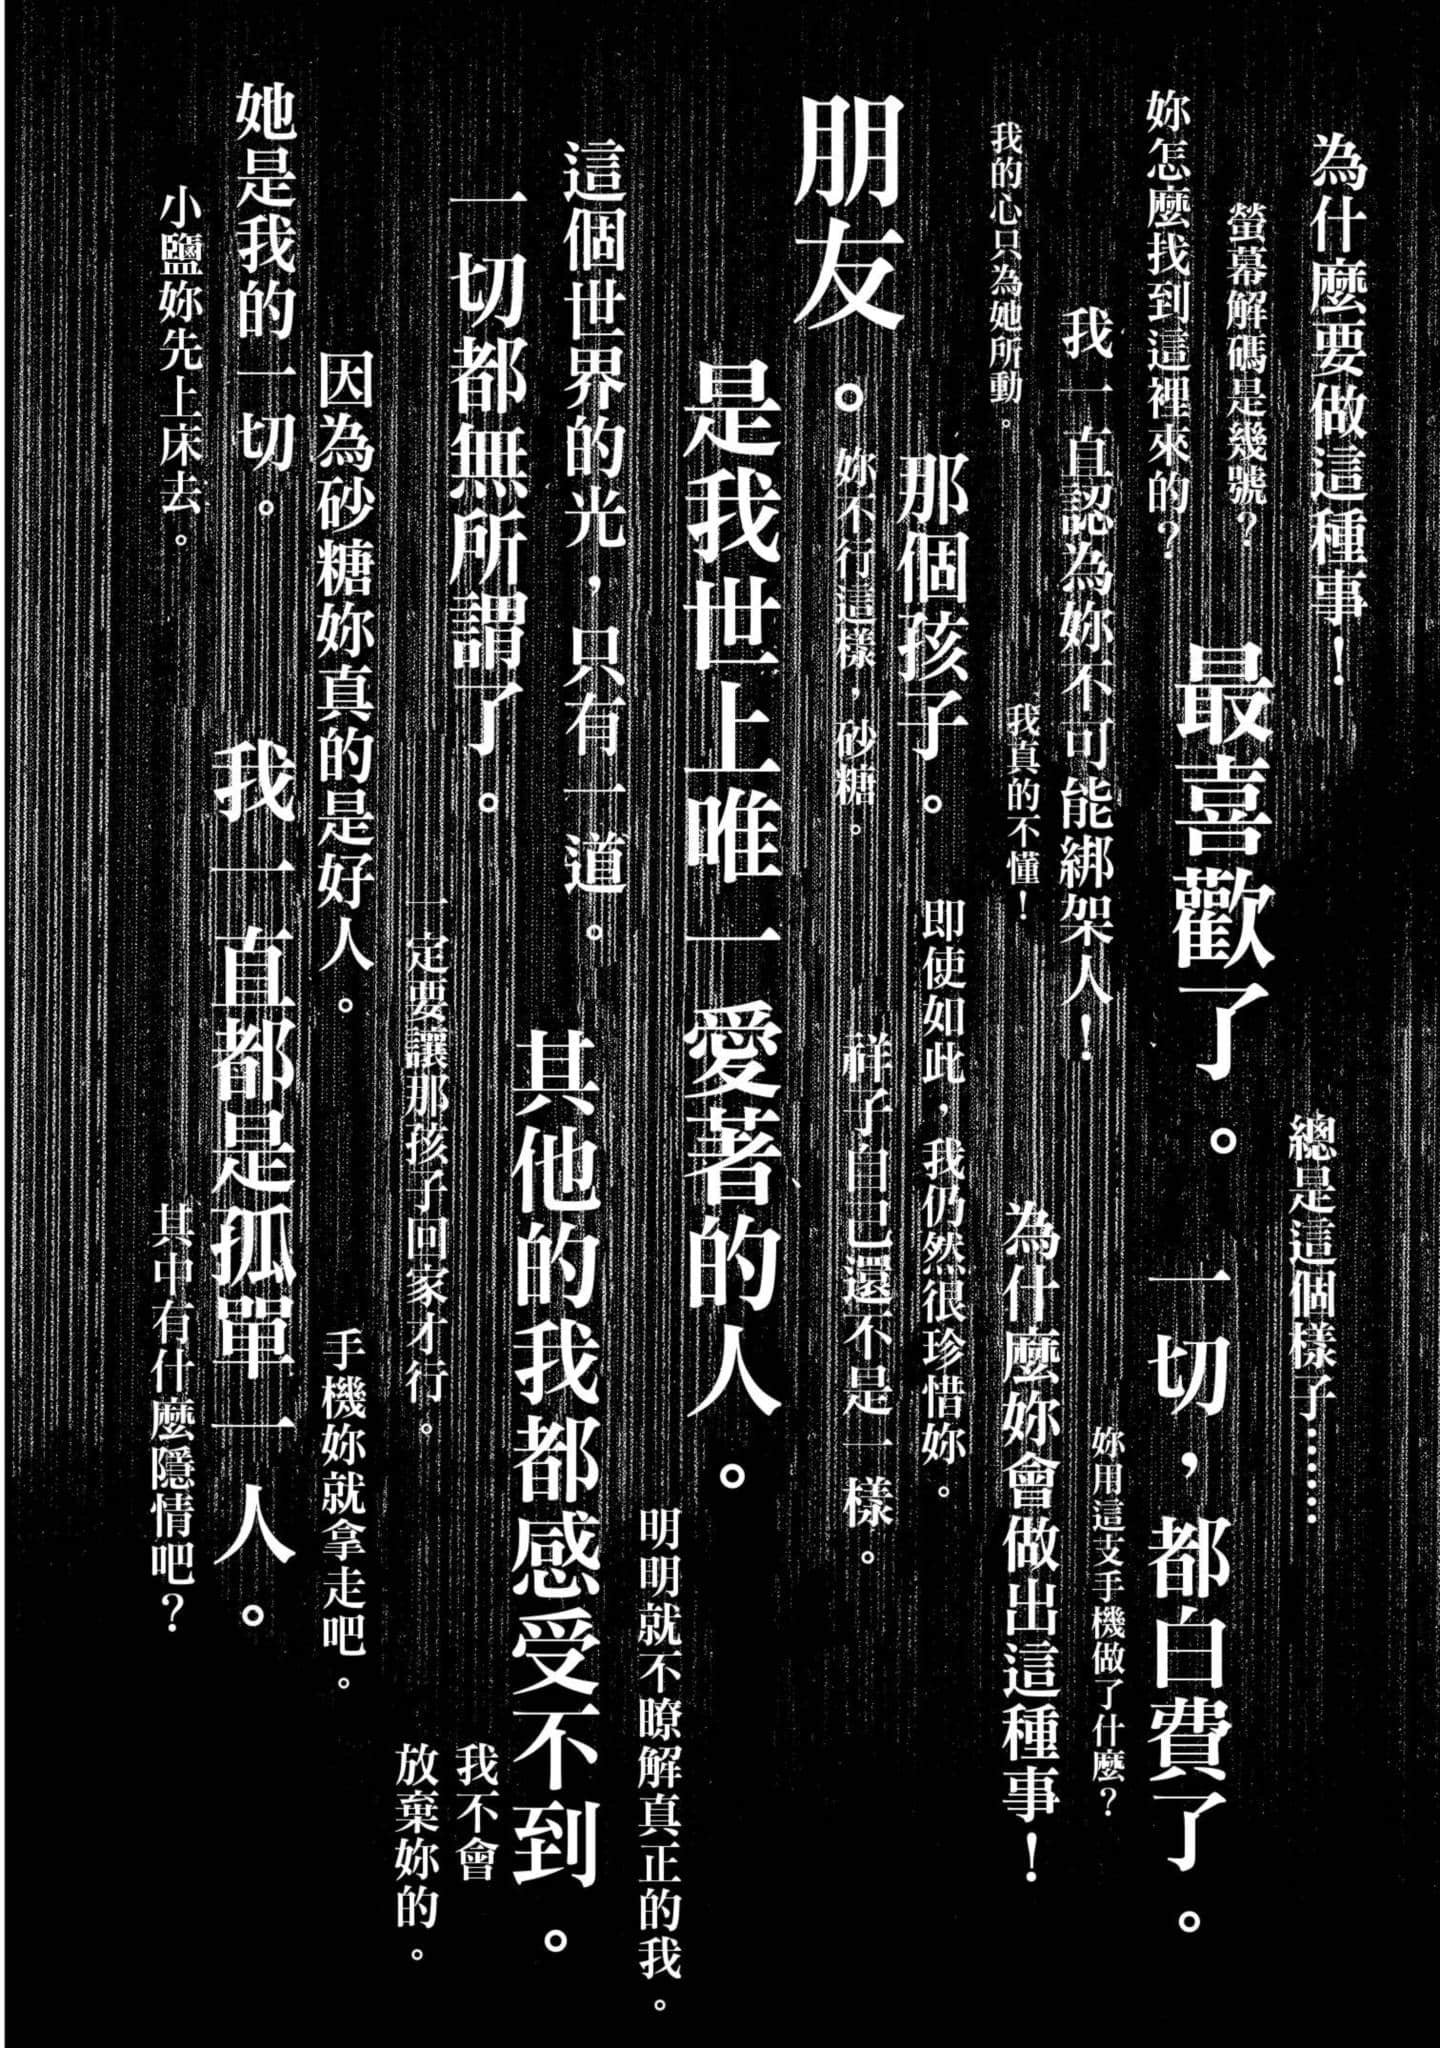 為什麼要做這種事！
總是這個樣子……
螢幕解碼是幾號？
最喜歡了。
妳怎麼找到這裡來的？
一切，都白費了。
妳用這支手機做了什麼？
我一直認為妳不可能綁架人！
為什麼妳會做出這種事！
我的心只為她所動。
我真的不懂！
那個孩子。
即使如此，我仍然很珍惜妳。
朋友。
妳不行這樣，砂糖。
祥子自己還不是一樣。
是我世上唯一愛著的人。
明明就不瞭解真正的我。
這個世界的光，只有一道。
其他的我都感受不到。
一切都無所謂了。
我不會
放棄妳的。
一定要讓那孩子回家才行。
因為砂糖妳真的是好人。
手機妳就拿走吧。
她是我的一切。
我一直都是孤單一人。
小鹽妳先上床去。
其中有什麼隱情吧？